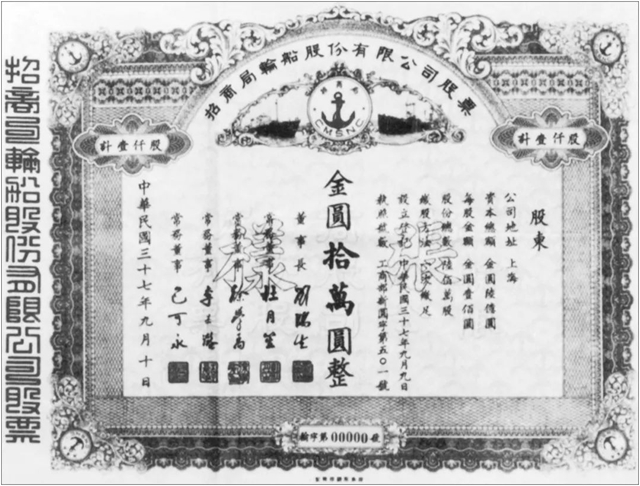 招商局輪船股份有限公司股票
招商局輪船股份有限公司股票
招商局
CMSNC
計壹仟股
計壹仟股
股東
公司地址 上海
資本總額 金圓陸億圓
每股金額 金圓壹佰圓
股份總數 陸佰萬股
繳股方法 一次繳足
設立登記 中華民國三十七年九月九日
執照號數 工商部新國字第五〇一號
金圓拾萬圓整
董事長 劉鴻生
常務董事 杜月笙
常務董事 徐學禹
常務董事 李
常務董事 包可永
中華民國三十七年九月十日
樣
輪字第00000號